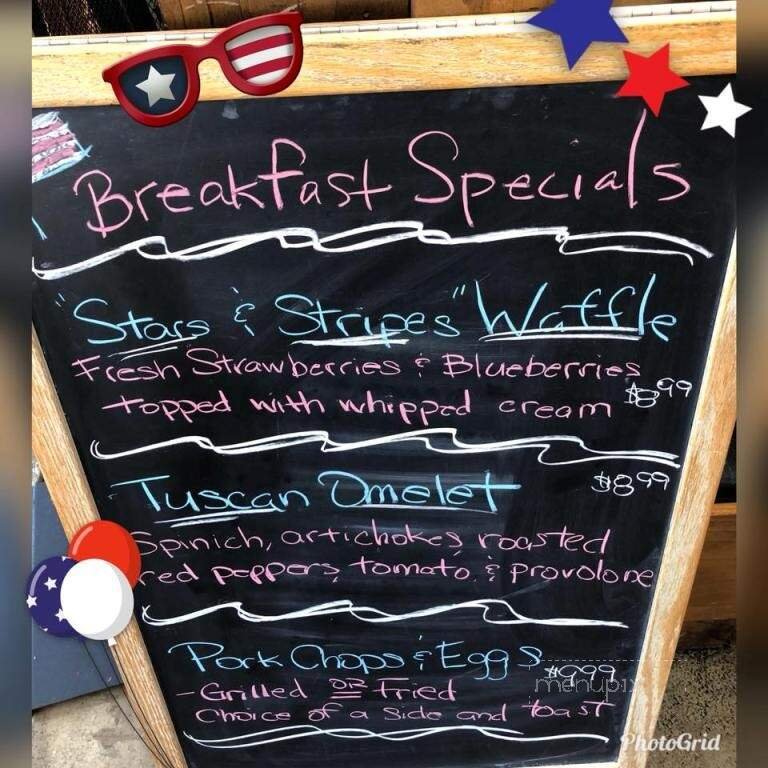 Breakfast Specials
"Stars & Stripes" Waffle
Fresh Strawberries & Blueberries
topped with whipped cream $8.99
Tuscan Omelet $8.99
Spinich, artichokes, roasted
red peppers, tomato & provolone
Pork Chops & Eggs $9.99
- Grilled OR Fried
Choice of a Side and toast
menupix
PhotoGrid